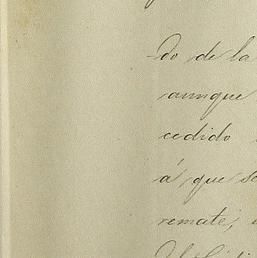 do de la
aunque
cedido
á que se
remate;